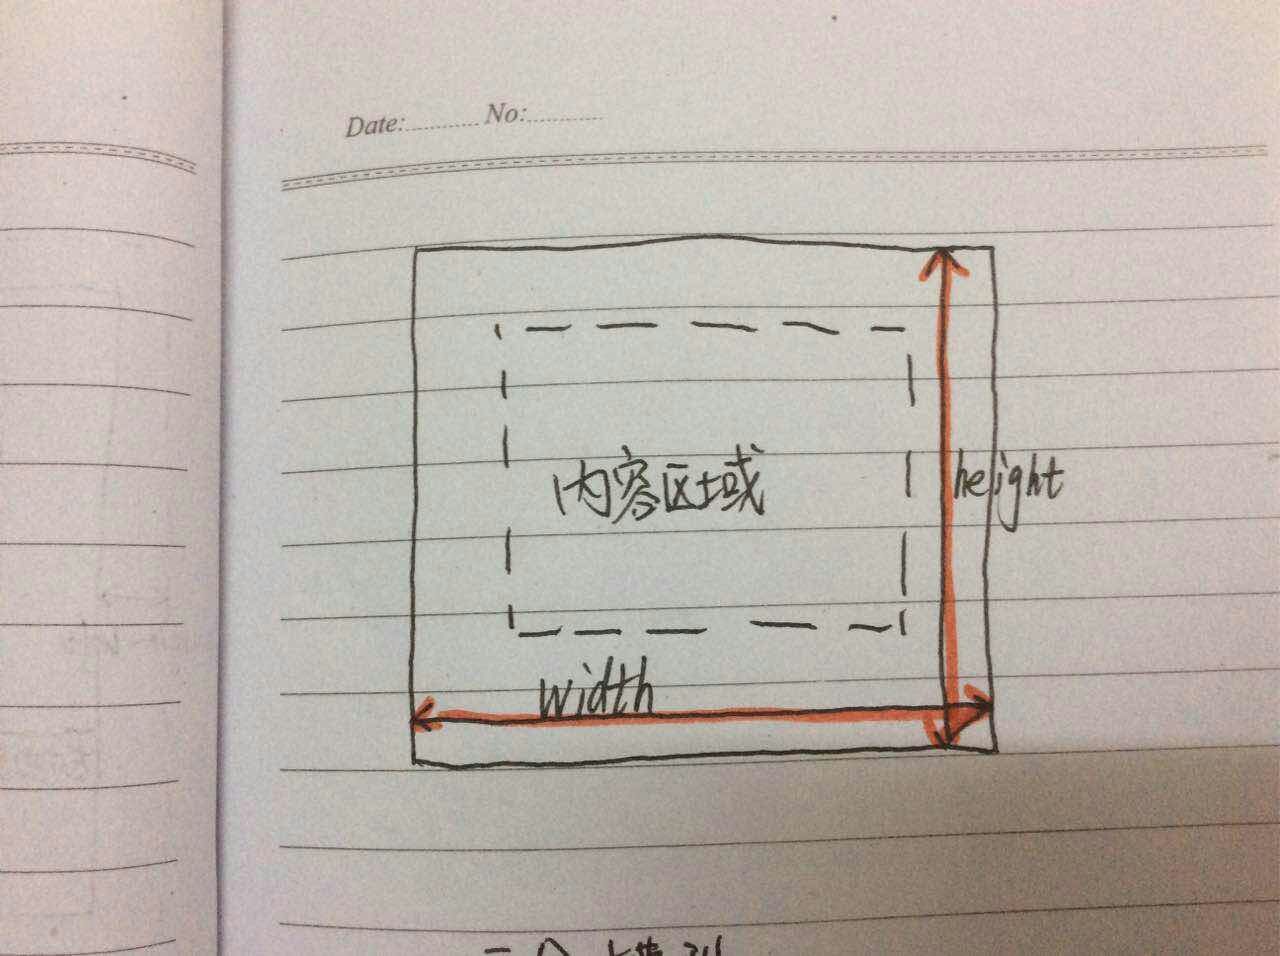 Date: No:
内容区域
height
width